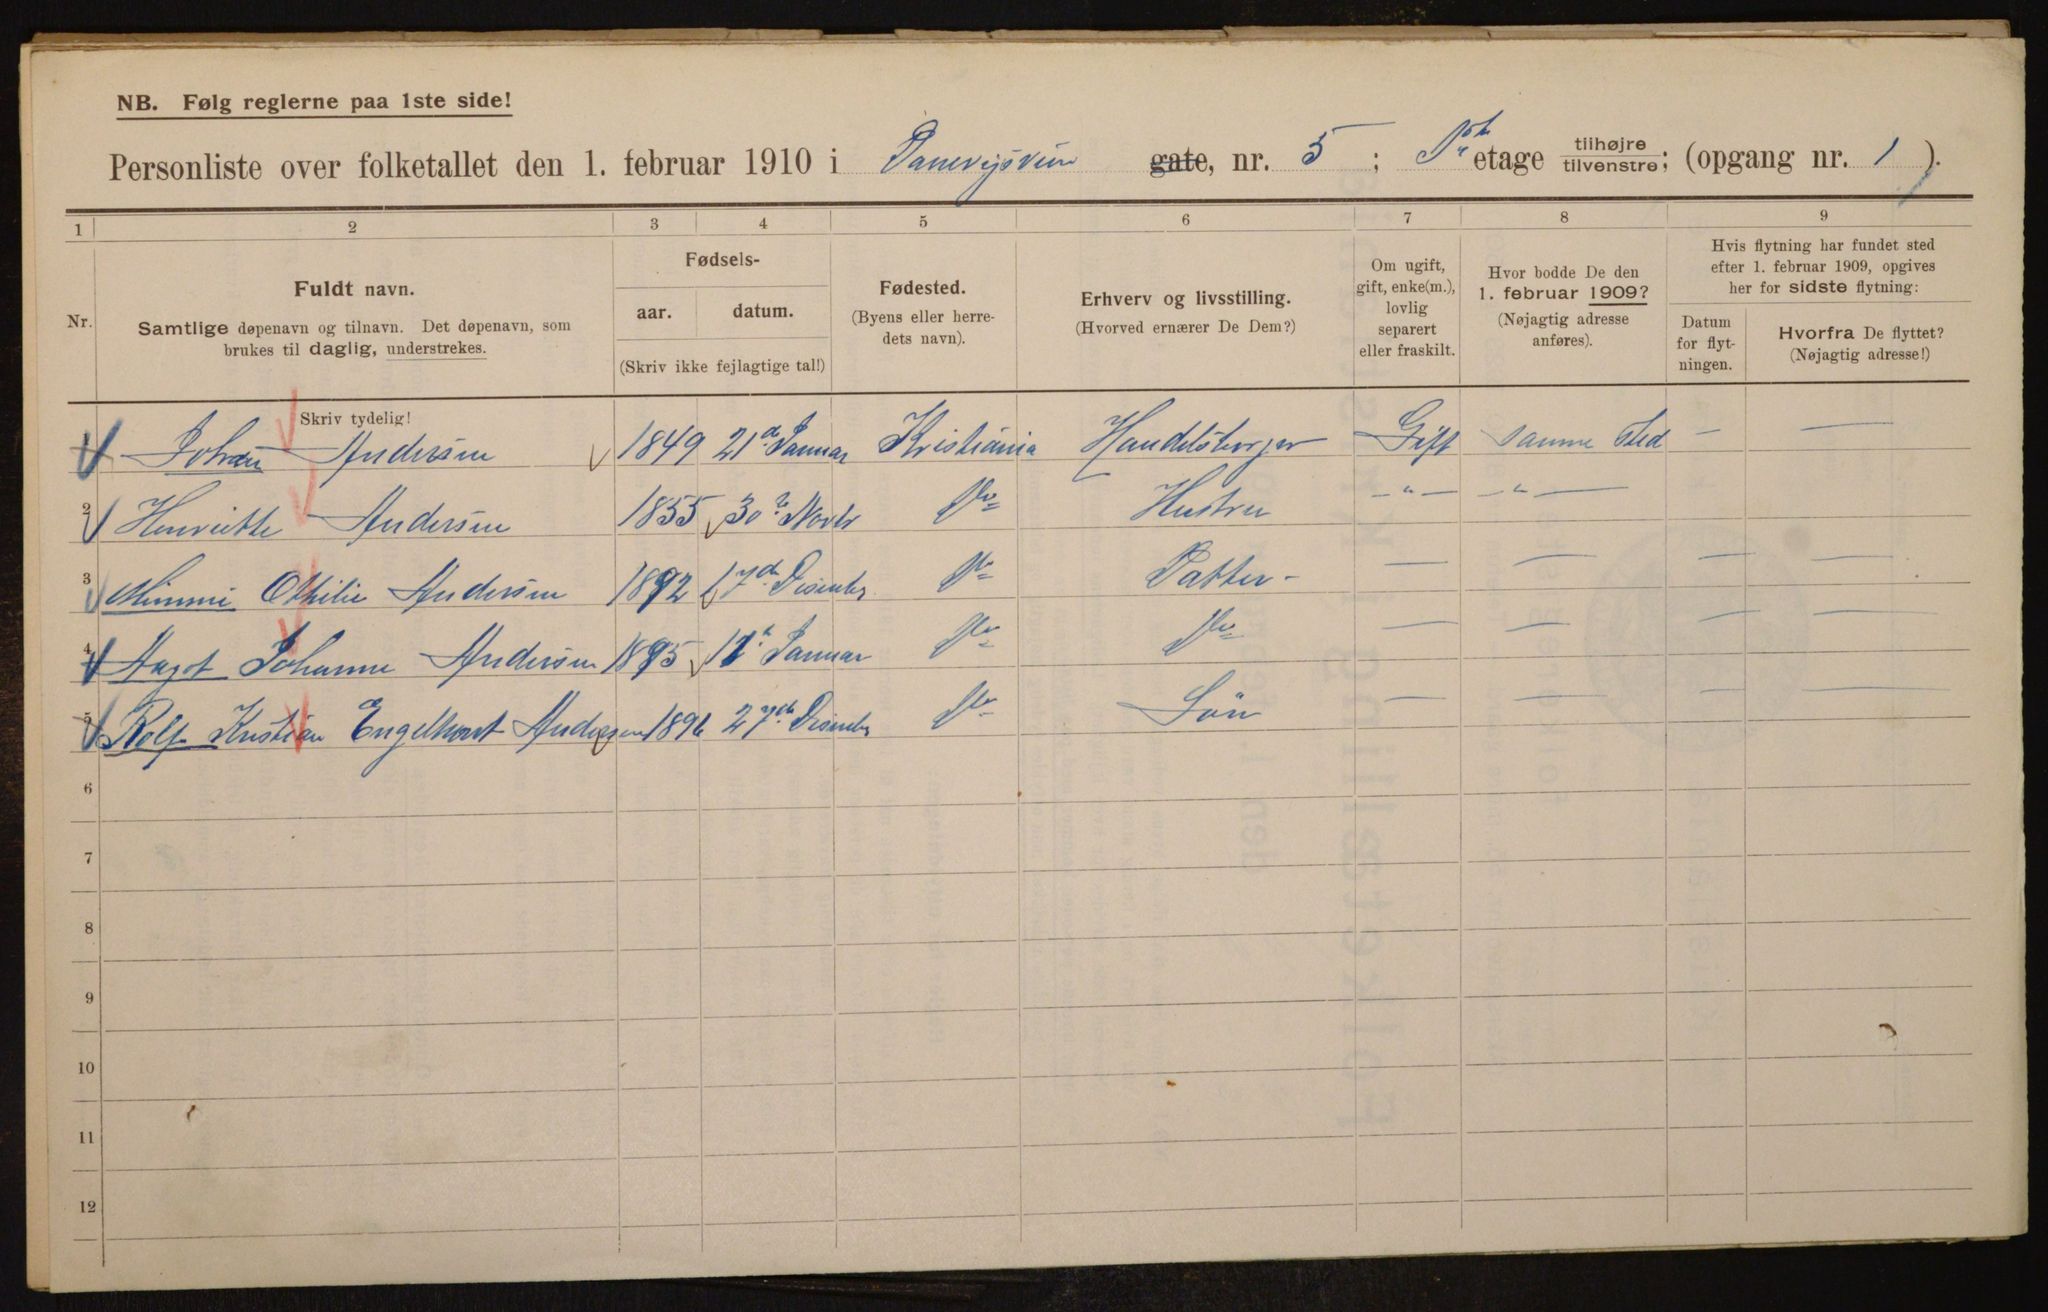 NB. Følg reglerne paa 1ste side!
Personliste over folketallet den 1. februar 1910 i gate, nr. 5 ; etage tilhøjre tilvenstre; (opgang nr. 1 ).
1 2 3 4 5 6 7 8 9
Nr.
Fuldt navn.
Samtlige døpenavn og tilnavn. Det døpenavn, som
brukes til daglig, understrekes.
Fødsels-
aar. datum.
(Skriv ikke fejlagtige tal!)
Fødested.
(Byens eller herre-
dets navn).
Erhverv og livsstilling.
(Hvorved ernærer De Dem?)
Om ugift,
gift, enke(m.),
lovlig
separert
eller fraskilt.
Hvor bodde De den
1. februar 1909?
(Nøjagtig adresse
anføres).
Hvis flytning har fundet sted
efter 1. februar 1909, opgives
her for sidste flytning:
Datum
for flyt-
ningen.
Hvorfra De flyttet?
(Nøjagtig adresse!)
Skriv tydelig!
Johan Andersen 1849 21de Januar Kristiania Handelsborger Gift samme sted — —
2 Henriette Andersen 1855 30te Novbr Do Hustru — " — — " —
3 Othilie Andersen 1892 17de Desember Do Datter - — — — —
4 Aagot Johanne Andersen 1895 Januar Do Do — — — —
5 Rolf Kristian Andersen 1896 27de Desember Do Søn — — — —
6
7
8
9
10
11
12